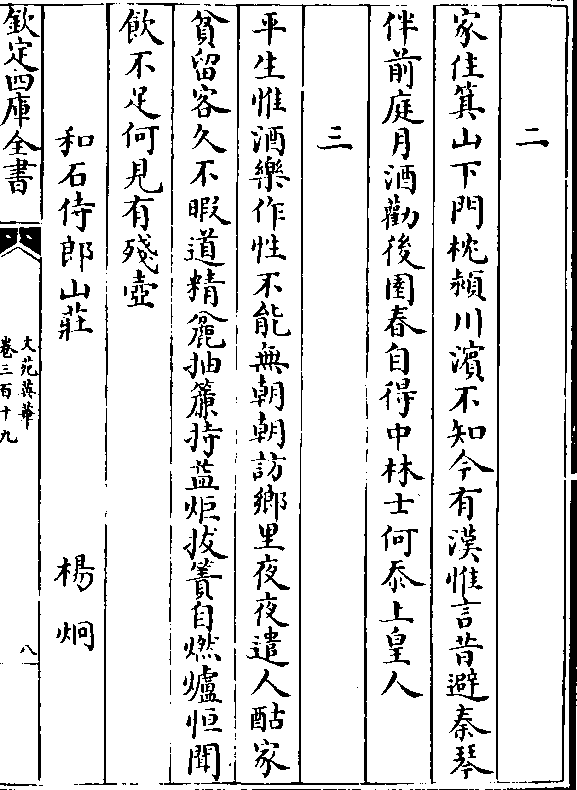 二
家住箕山下門枕潁川濱不知今有漢惟言昔避秦琴
伴前庭月酒勸後園春自得中林士何忝上皇人
三
平生惟酒樂作性不能無朝朝訪鄉里夜夜遣人酤家
貧留客久不暇道精麄抽簾持益炬拔簀自燃爐恒聞
飲不足何見有殘壺
和石侍郎山莊　楊炯
欽定四庫全書
文苑英華
卷三百十九
八